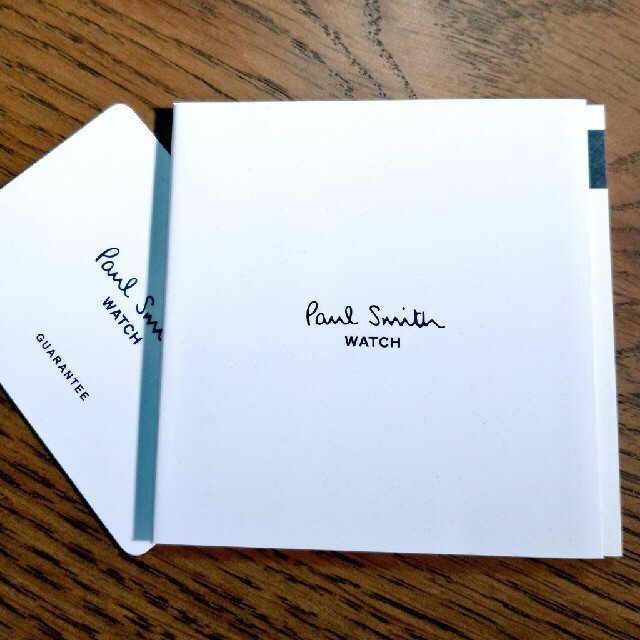 Paul Sm
WATCH
GUARANTEE
Paul Smith
WATCH